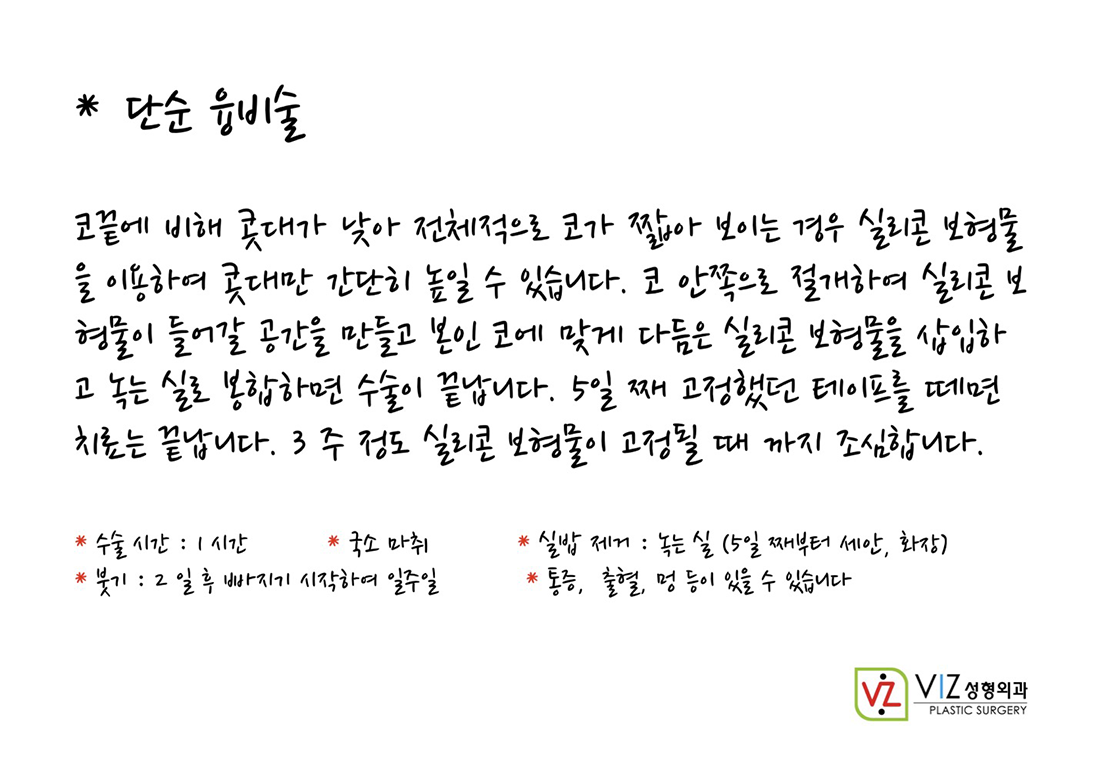 * 단순 융비술
코끝에 비해 콧대가 낮아 전체적으로 코가 짧아 보이는 경우 실리콘 보형물
을 이용하여 콧대만 간단히 높일 수 있습니다. 코 안쪽으로 절개하여 실리콘 보
형물이 들어갈 공간을 만들고 본인 코에 맞게 다듬은 실리콘 보형물을 삽입하
고 녹는 실로 봉합하면 수술이 끝납니다. 5일 째 고정했던 테이프를 떼면
치료는 끝납니다. 3 주 정도 실리콘 보형물이 고정될 때 까지 조심합니다.
* 수술 시간 : 1 시간 * 국소 마취 * 실밥 제거 : 녹는 실 (5일 째부터 세안, 화장)
* 붓기 : 2 일 후 빠지기 시작하여 일주일 * 통증, 출혈, 멍 등이 있을 수 있습니다
VZ VIZ성형외과
PLASTIC SURGERY